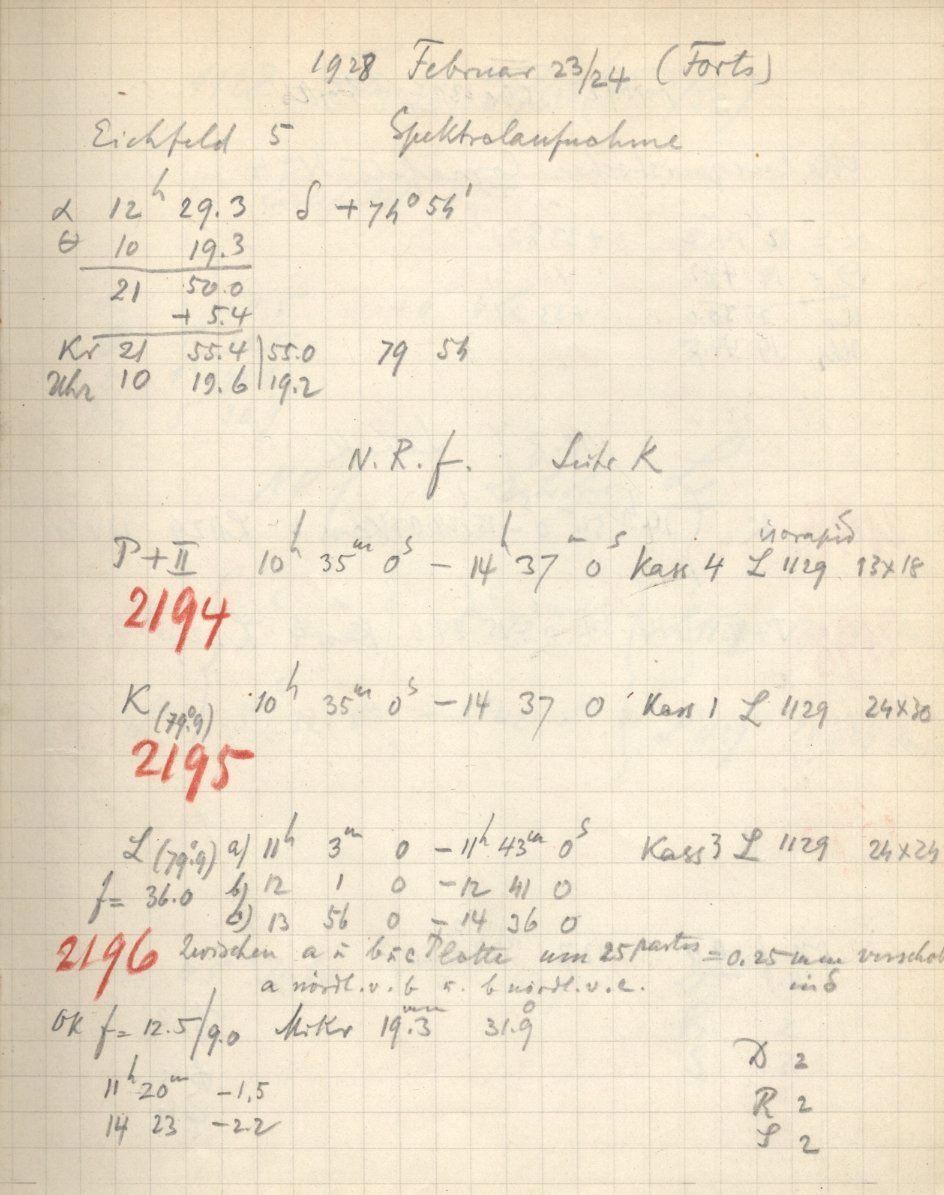 1928 Februar 23/24 (Forts)
Eichfeld 5 Spektralaufnahme
α 12h 29.3 δ +74° 54'
θ 10 19.3
21 50.0
+ 5.4
Kr 21 55.4 | 55.0 79 54
Uhr 10 19.6 | 19.2
N. R. f. Seite K
P + II 10h 35m 0s – 14h 37m 0s Kass 4 L isorapid 1129 13×18
2194
K (79°.9) 10h 35m 0s – 14 37 0 Kass 1 L 1129 24×30
2195
L (79°.9) a) 11h 3m 0 – 11h 43m 0s Kass 3 L 1129 24×24
f= 36.0 b) 12 1 0 – 12 41 0
c) 13 56 0 – 14 36 0
2196 Zwischen a u b u c Platte um 25 partes = 0.25 mm verschob
a nördl. v. b u. b nördl. v. c. in δ
OK f= 12.5/9.0 Mikr 19.3mm 31.9
11h 20m –1.5
14 23 –2.2
D 2
R 2
S 2